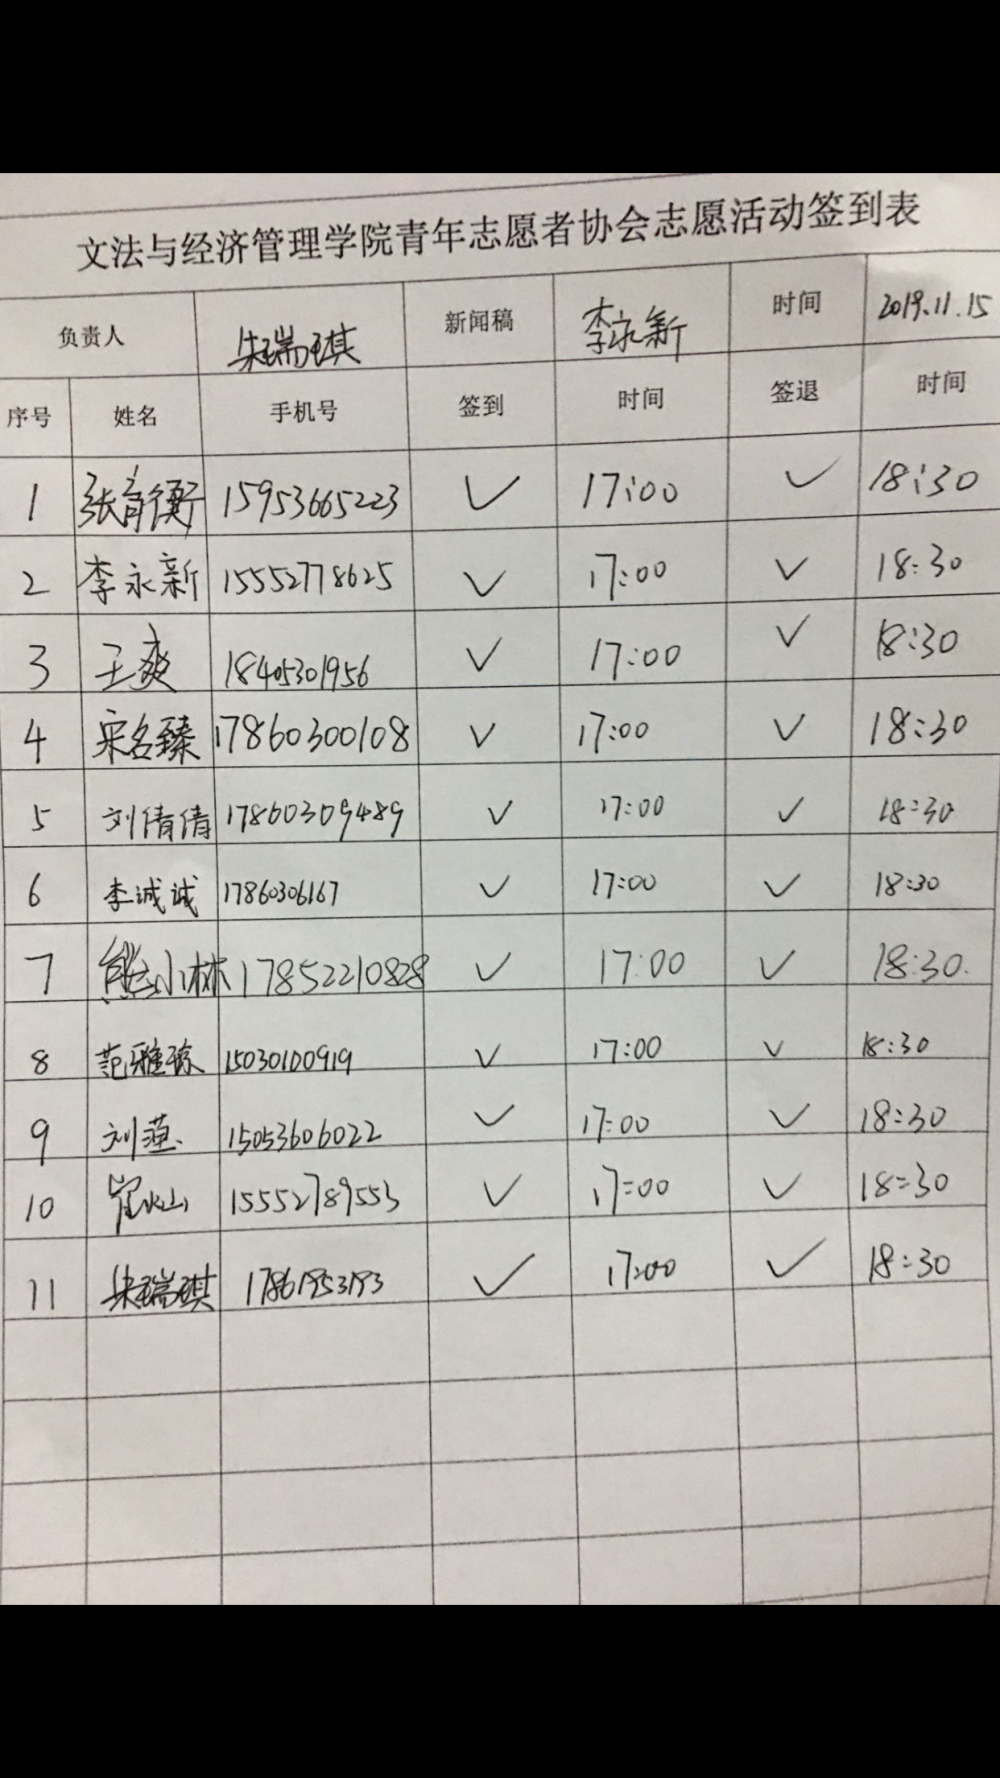 文法与经济管理学院青年志愿者协会志愿活动签到表
负责人 朱瑞琪 新闻稿 李永新 时间 2019.11.15
序号 姓名 手机号 签到 时间 签退 时间
1 张育衡 15953665223 ✓ 17:00 ✓ 18:30
2 李永新 15552778625 ✓ 17:00 ✓ 18:30
3 王爽 18405301956 ✓ 17:00 ✓ 18:30
4 宋名臻 17860300108 ✓ 17:00 ✓ 18:30
5 刘倩倩 17860309489 ✓ 17:00 ✓ 18:30
6 李诚诚 17860306167 ✓ 17:00 ✓ 18:30
7 熊小林 17852210828 ✓ 17:00 ✓ 18:30.
8 范雅琼 15030100919 ✓ 17:00 ✓ 18:30
9 刘 15053606022 ✓ 17:00 ✓ 18:30
10 崔火山 15552789553 ✓ 17:00 ✓ 18:30
11 朱瑞琪 ✓ 17:00 ✓ 18:30